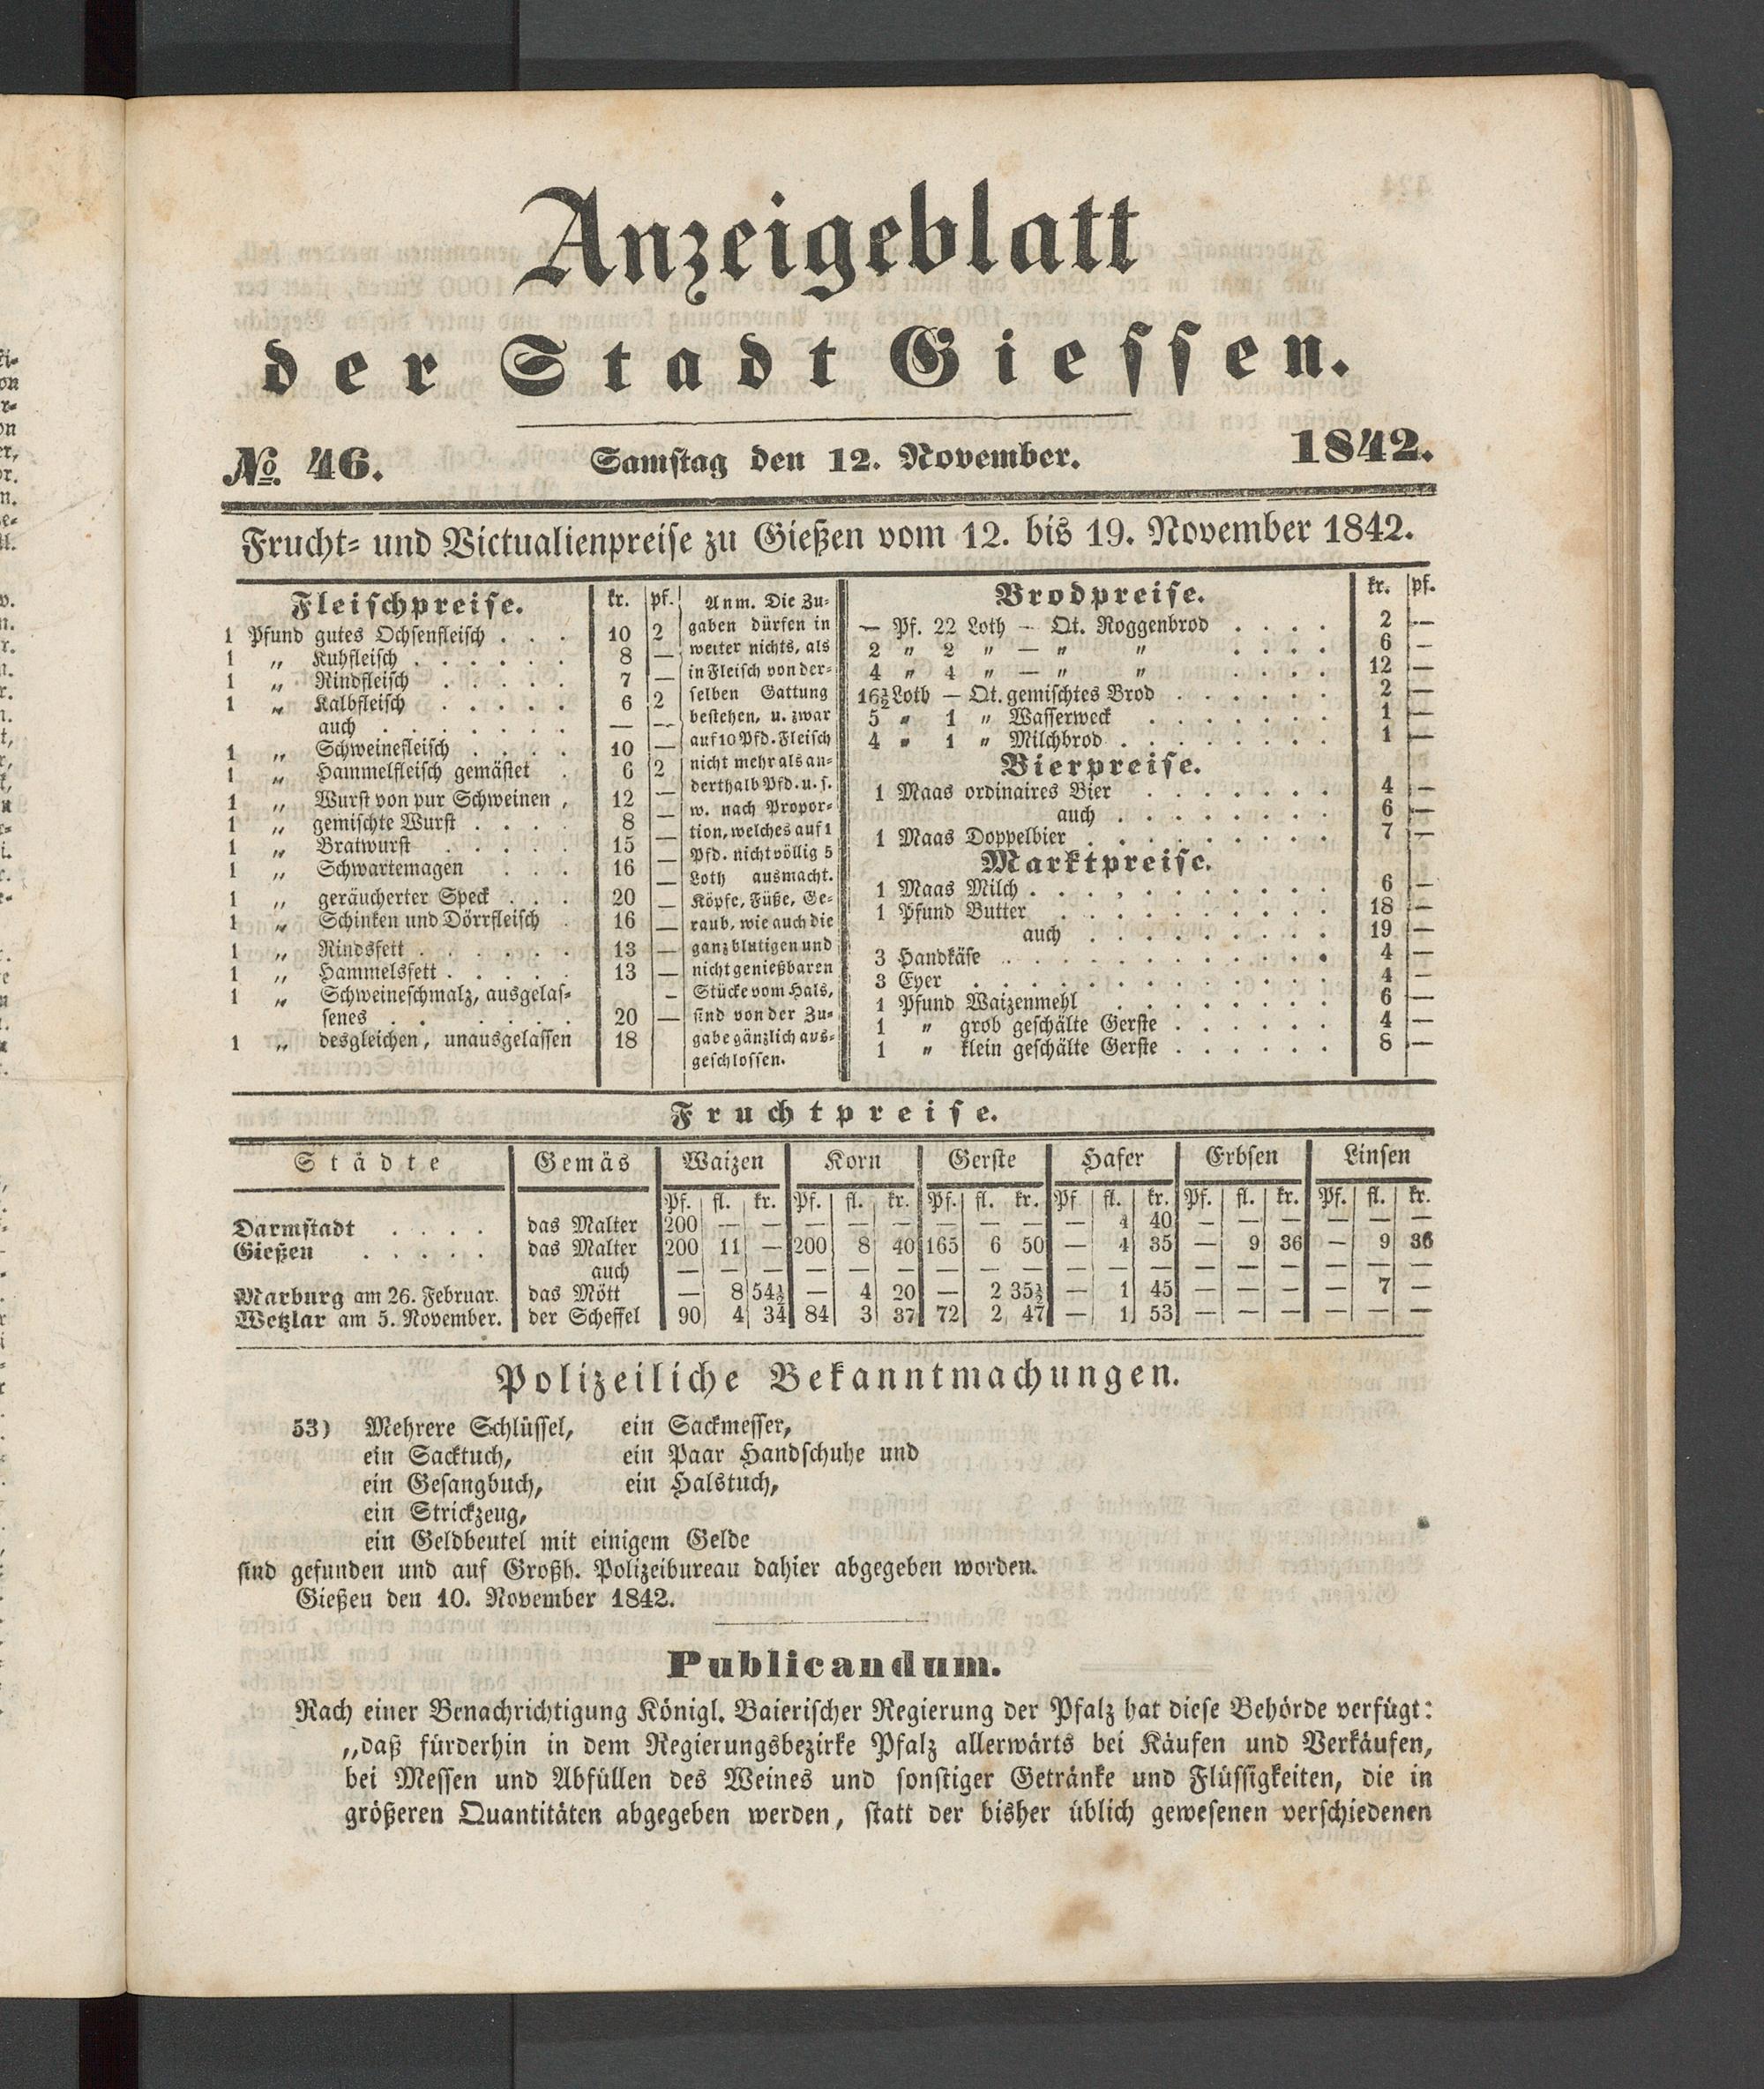 Anzeigeblatt
der Stadt Giessen.
No. 46. Samstag den 12. November. 1842.
Frucht- und Victualienpreise zu Gießen vom 12. bis 19. November 1842.
Fleischpreise. kr. pf.
1 Pfund gutes Ochsenfleisch . . . 10 2
1 „ Kuhfleisch . . . . . . 8 —
1 „ Rindfleisch . . . . . 7 —
1 „ Kalbfleisch . . . . . 6 2
auch . . . . . . . — —
1 „ Schweinefleisch . . . . 10 —
1 „ Hammelfleisch gemästet . 6 2
1 „ Wurst von pur Schweinen , 12 —
1 „ gemischte Wurst . . . . 8 —
1 „ Bratwurst . . . . . 15 —
1 „ Schwartemagen . . . 16 —
1 „ geräucherter Speck . . . 20 —
1 „ Schinken und Dörrfleisch . 16 —
1 „ Rindsfett . . . . . . 13 —
1 „ Hammelsfett . . . . . 13 —
1 „ Schweineschmalz, ausgelas-
senes . . . . . . . 20 —
1 „ desgleichen, unausgelassen 18
Anm. Die Zu-
gaben dürfen in
weiter nichts, als
in Fleisch von der-
selben Gattung
bestehen, u. zwar
auf 10 Pfd. Fleisch
nicht mehr als an-
derthalb Pfd. u. s.
w. nach Propor-
tion, welches auf 1
Pfd. nicht völlig 5
Loth ausmacht.
Köpfe, Füße, Ge-
raub, wie auch die
ganz blutigen und
nicht genießbaren
Stücke vom Hals,
sind von der Zu-
gabe gänzlich aus-
geschlossen.
Brodpreise. kr. pf.
— Pf. 22 Loth — Qt. Roggenbrod . . . . 2 —
2 „ 2 „ — „ „ . . . . 6 —
4 „ 4 „ — „ „ . . . . 12 —
16½ Loth — Qt. gemischtes Brod . . . . . . 2 —
5 „ 1 „ Wasserweck . . . . . . . 1 —
4 „ 1 „ Milchbrod . . . . . . . . 1 —
Bierpreise.
1 Maas ordinaires Bier . . . . . . . 4 —
auch . . . . . . . . 6 —
1 Maas Doppelbier . . . . . . . . . 7 —
Marktpreise.
1 Maas Milch . . . . . . . . . . . 6 —
1 Pfund Butter . . . . . . . . . . 18 —
auch . . . . . . . . . 19 —
3 Handkäse . . . . . . . . . . . . 4 —
3 Eyer . . . . . . . . . . . . . 4 —
1 Pfund Waizenmehl . . . . . . . . 6 —
1 „ grob geschälte Gerste . . . . . . 4 —
1 „ klein geschälte Gerste . . . . . . 8 —
Fruchtpreise.
Städte Gemäs Waizen Korn Gerste Hafer Erbsen Linsen
Pf. fl. kr. Pf. fl. kr. Pf. fl. kr. Pf fl. kr. Pf. fl. kr. Pf. fl. kr.
Darmstadt . . . . das Malter 200 — — — — — — — — — 4 40 — — — — — —
Gießen . . . . . das Malter 200 11 — 200 8 40 165 6 50 — 4 35 — 9 36 — 9 36
auch — — — — — — — — — — — — — — — — — —
Marburg am 26. Februar. das Mött — 8 54½ — 4 20 — 2 35½ — 1 45 — — — — 7 —
Wetzlar am 5. November. der Scheffel 90 4 34 84 3 37 72 2 47 — 1 53 — — — — — —
Polizeiliche Bekanntmachungen.
53) Mehrere Schlüssel, ein Sackmesser,
ein Sacktuch, ein Paar Handschuhe und
ein Gesangbuch, ein Halstuch,
ein Strickzeug,
ein Geldbeutel mit einigem Gelde
sind gefunden und auf Großh. Polizeibureau dahier abgegeben worden.
Gießen den 10. November 1842.
Publicandum.
Nach einer Benachrichtigung Königl. Baierischer Regierung der Pfalz hat diese Behörde verfügt:
„daß fürderhin in dem Regierungsbezirke Pfalz allerwärts bei Käufen und Verkäufen,
bei Messen und Abfüllen des Weines und sonstiger Getränke und Flüssigkeiten, die in
größeren Quantitäten abgegeben werden, statt der bisher üblich gewesenen verschiedenen